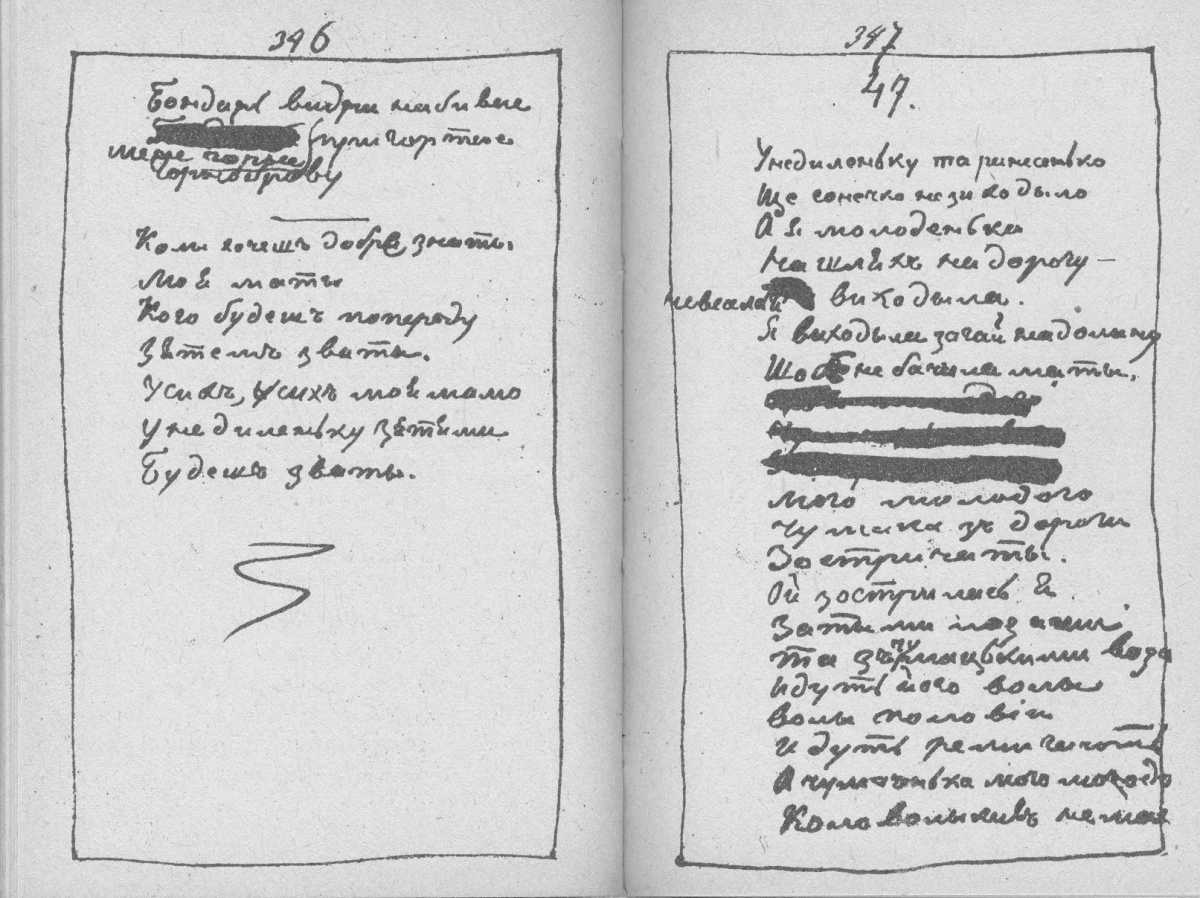 346
Бондарь видра набивае
пригортае
мене чорня
чорнобриву
Коли хочешъ добре, знаты.
Моя маты
Кого будешъ попереду
Зятемъ зваты.
Усихъ, усихъ моя мамо
У недиленьку зятями
Будешъ зваты.
347
47.
У недиленьку та ранесенько
Ще сонечко не зиходыло
А я молоденька
На шляхъ на дорогу —
невеселая выходыла.
Я выходыла за гай на долину
Щоб не бачила маты,
Мого молодого
Чумака зъ дороги
Зостричаты.
Ой зострилась я
За тыми лозами
Та зъ чумацькими воза
Идуть його волы
волы половіи
Идуть ремигають
А чумаченька мого молодо
Коло воликивъ немае